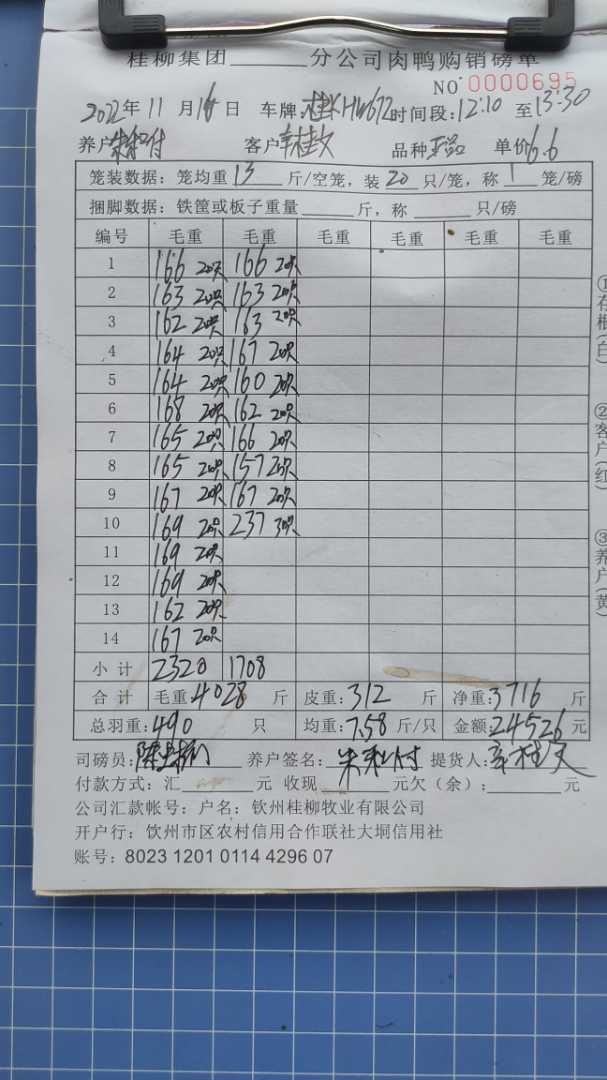 桂柳集团______分公司肉鸭购销磅单
NO 0000695
2022年11月16日 车牌:桂KHW672时间段:12:10至13:30
养户 朱和付 客户 辛桂文 品种 单价6.6
笼装数据:笼均重13斤/空笼,装20只/笼,称1笼/磅
捆脚数据:铁筐或板子重量____斤,称____只/磅
编号 毛重 毛重 毛重 毛重 毛重 毛重
1 166 20只 166 20只
2 163 20只 163 20只
3 162 20只 163 20只
4 164 20只 167 20只
5 164 20只 160 20只
6 168 20只 162 20只
7 165 20只 166 20只
8 165 20只 157 20只
9 167 20只 167 20只
10 169 20只 237 30只
11 169 20只
12 169 20只
13 162 20只
14 167 20只
小计 2320 1708
合计 毛重:4028斤 皮重:312斤 净重:3716斤
总羽重:490只 均重:7.58斤/只 金额:24526元
司磅员: 养户签名:朱和付 提货人:辛桂文
付款方式:汇____元 收现____元欠(余):____元
公司汇款帐号:户名:钦州桂柳牧业有限公司
开户行:饮州市区农村信用合作联社大垌信用社
账号:8023 1201 0114 4296 07
①存根(白)
②客户(红)
③养户(黄)